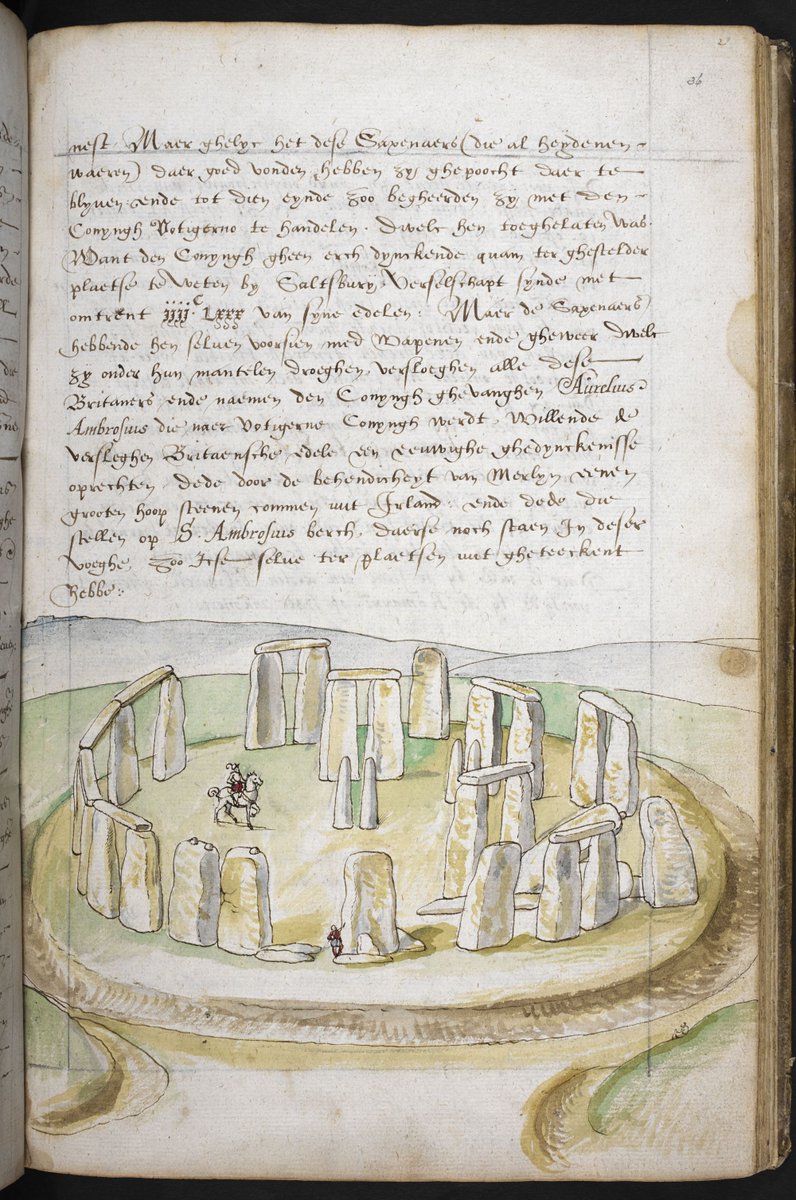 36
nest. Maer ghelyc het dese Saxenaers (die al heydenen-
waeren) daer goed vonden hebben zy ghepoocht daer te
blyven ende tot dien eynde zoo begheerden zy met den-
Conyngh Votigerno te handelen. dwelc hen toeghelaten was.
Want den Conyngh gheen erch dynckende quam ter ghestelder
plaetse te weten by Saltsbury, verselschapt synde met
omtrent iiiiᶜ Lxxx van syne edelen: Maer de Saxenaers
hebbende hen selven voorsien med Wapenen ende gheweer dwelc
zy onder hun mantelen droeghen, versloeghen alle dese
Britaners ende naemen den Conyngh ghevanghen. Aurelius
Ambrosius die naer Votigerne Conyngh werdt, willende de
versleghen Britaensche edele een eeuwighe ghedynckenisse
oprechten, dede door de behendicheyt van Merlyn eenen
grooten hoop steenen commen uut Irland: ende dede die
stellen op S. Ambrosius berch, daerse noch staen In deser
voeghe, zoo Icse selve ter plaetsen uut gheteeckent
hebbe: